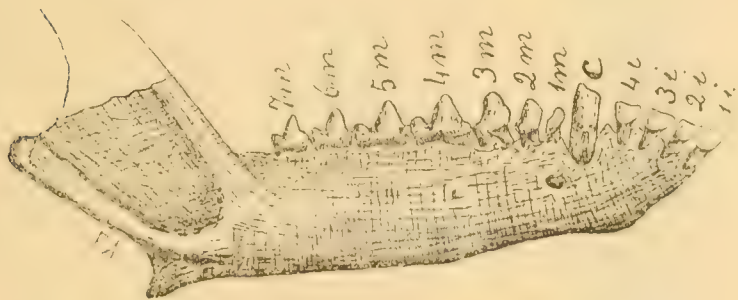 7m 6m 5m 4m 3m 2m 1m c 4i 3i 2i 1i